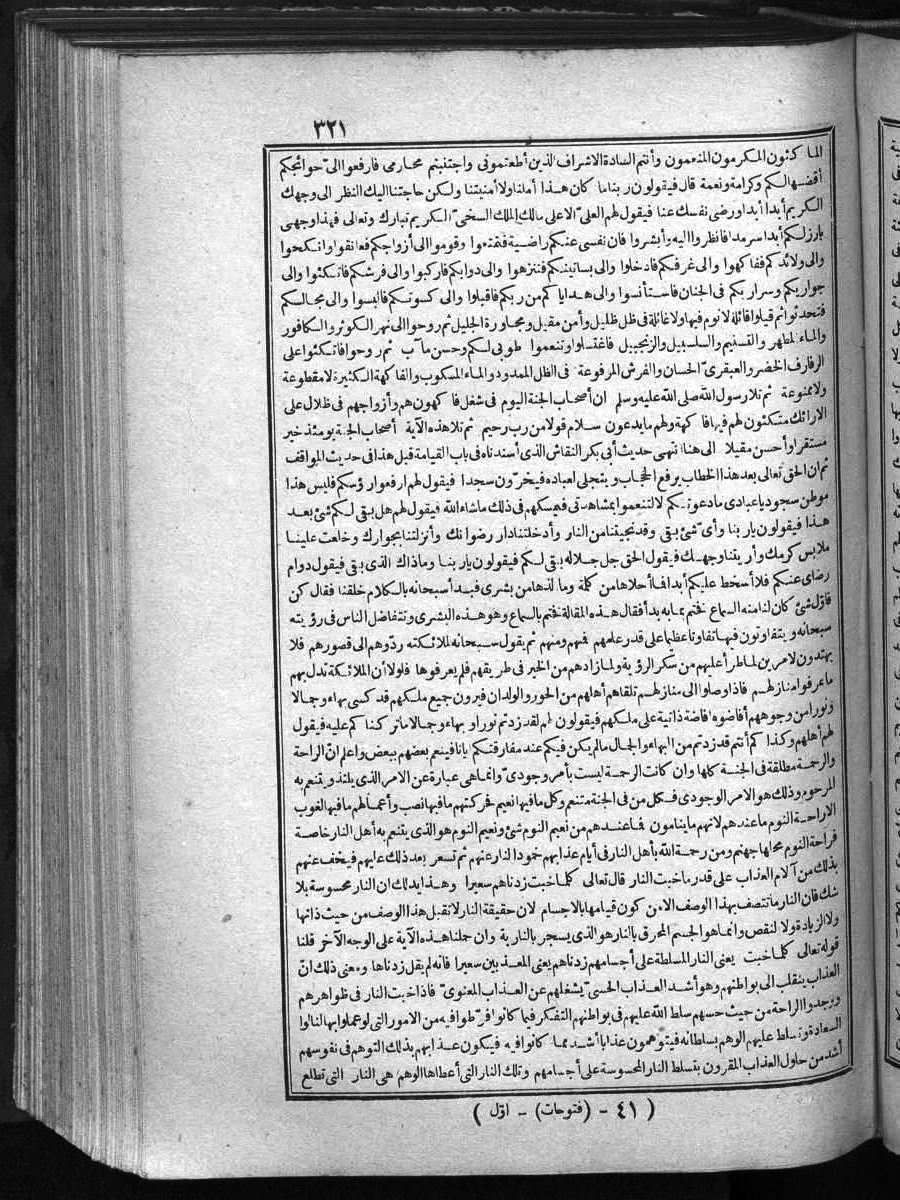 ٣٢١
الماكثون المكرمون المنعمون وأنتم السادة الاشراف الذين أطعتمونى واجتنبتم محارمى فارفعوا الىّ حوائجكم
أقضها لكم وكرامة ونعمة قال فيقولون ربنا ما كان هذا أملنا ولا أمنيتنا ولكن حاجتنا اليك النظر الى وجهك
الكريم أبدا أبدا ورضى نفسك عنا فيقول لهم العلىّ الاعلى مالك الملك السخىّ الكريم تبارك وتعالى فهذا وجهى
بارز لكم أبدا سرمدا فانظروا اليه وأبشروا فان نفسى عنكم راضية فتمتعوا وقوموا الى أزواجكم فعانقوا وانكحوا
والى ولائدكم ففاكهوا والى غرفكم فادخلوا والى بساتينكم فتنزهوا والى دوابكم فاركبوا والى فرشكم فاتكئوا والى
جواريكم وسراريكم فى الجنان فاستأنسوا والى هداياكم من ربكم فاقبلوا والى كسوتكم فالبسوا والى مجالسكم
فتحدثوا ثم قيلوا قائلة لا نوم فيها ولا غائلة فى ظل ظليل وأمن مقيل ومجاورة الجليل ثم روحوا الى نهر الكوثر والكافور
والماء المطهر والتسنيم والسلسبيل والزنجبيل فاغتسلوا وتنعموا طوبى لكم وحسن مآب ثم روحوا فاتكئوا على
الرفارف الخضر والعبقرىّ الحسان والفرش المرفوعة فى الظل الممدود والماء المسكوب والفاكهة الكثيرة لا مقطوعة
ولا ممنوعة ثم تلا رسول الله صلى الله عليه وسلم ان أصحاب الجنة اليوم فى شغل فاكهون هم وأزواجهم فى ظلال على
الارائك متكئون لهم فيها فاكهة ولهم ما يدعون سلام قولا من رب رحيم ثم تلا هذه الآية أصحاب الجنة يومئذ خير
مستقرا وأحسن مقيلا الى هنا انتهى حديث أبى بكر النقاش الذى أسندناه فى باب القيامة قبل هذا فى حديث المواقف
ثم ان الحق تعالى بعد هذا الخطاب يرفع الحجاب ويتجلى لعباده فيخرّون سجدا فيقول لهم ارفعوا رؤسكم فليس هذا
موطن سجود يا عبادى ما دعوتكم الا لتنعموا بمشاهدتى فيمسكهم فى ذلك ما شاء الله فيقول لهم هل بقى لكم شئ بعد
هذا فيقولون يا ربنا وأىّ شئ بقى وقد نجيتنا من النار وأدخلتنا دار رضوانك وأنزلتنا بجوارك وخلعت علينا
ملابس كرمك وأريتنا وجهك فيقول الحق جل جلاله بقى لكم فيقولون يا ربنا وما ذاك الذى بقى فيقول دوام
رضاى عنكم فلا أسخط عليكم أبدا فما أحلاها من كلمة وما ألذها من بشرى فبدأ سبحانه بالكلام خلقنا فقال كن
فاوّل شئ كان لنا منه السماع فختم بما به بدأ فقال هذه المقالة فختم بالسماع وهو هذه البشرى وتتفاضل الناس فى رؤيته
سبحانه ويتفاوتون فيها تفاوتا عظيما على قدر علمهم فمنهم ومنهم ثم يقول سبحانه لملائكته ردّوهم الى قصورهم فلا
يهتدون لامرين لما طرأ عليهم من سكر الرؤية ولما زادهم من الخير فى طريقهم فلم يعرفوها فلولا أن الملائكة تدل بهم
ما عرفوا منازلهم فاذا وصلوا الى منازلهم تلقاهم أهلهم من الحور والولدان فيرون جميع ملكهم قد كسى بهاء وجمالا
ونورا من وجوههم أفاضوه افاضة ذاتية على ملكهم فيقولون لهم لقد زدتم نورا وبهاء وجمالا ما تركناكم عليه فيقول
لهم أهلهم وكذاكم أنتم قد زدتم من البهاء والجمال ما لم يكن فيكم عند مفارقتكم ايانا فينعم بعضهم ببعض واعلم انّ الراحة
والرحمة مطلقة فى الجنة كلها وان كانت الرحمة ليست بأمر وجودىّ وانما هى عبارة عن الامر الذى يلتذ ويتنعم به
المرحوم وذلك هو الامر الوجودى فكل من فى الجنة متنعم وكل ما فيها نعيم فحركتهم ما فيها نصب وأعمالهم ما فيها لغوب
الا راحة النوم ما عندهم لانهم ما ينامون فما عندهم من نعيم النوم شئ ونعيم النوم هو الذى يتنعم به أهل النار خاصة
فراحة النوم محلها جهنم ومن رحمة الله بأهل النار فى أيام عذابهم خمود النار عنهم ثم تسعر بعد ذلك عليهم فيخف عنهم
بذلك من آلام العذاب على قدر ما خبت النار قال تعالى كلما خبت زدناهم سعيرا وهذا يدلك ان النار محسوسة بلا
شك فان النار ما تتصف بهذا الوصف الا من كون قيامها بالاجسام لان حقيقة النار لا تقبل هذا الوصف من حيث ذاتها
ولا الزيادة ولا النقص وانما هو الجسم المحرق بالنار هو الذى يسجر بالنارية وان حملنا هذه الآية على الوجه الآخر قلنا
قوله تعالى كلما خبت يعنى النار المسلطة على أجسامهم زدناهم يعنى المعذبين سعيرا فانه لم يقل زدناها ومعنى ذلك انّ
العذاب ينقلب الى بواطنهم وهو أشد العذاب الحسىّ يشغلهم عن العذاب المعنوىّ فاذا خبت النار فى ظواهرهم
ووجدوا الراحة من حيث حسهم سلط الله عليهم فى بواطنهم التفكر فيما كانوا فرّطوا فيه من الامور التى لو عملوا بها لنالوا
السعادة وتسلط عليهم الوهم بسلطانه فيتوهمون عذابا أشد مما كانوا فيه فيكون عذابهم بذلك التوهم فى نفوسهم
أشد من حلول العذاب المقرون بتسلط النار المحسوسة على أجسامهم وتلك النار التى أعطاها الوهم هى النار التى تطلع
( ٤١ - (فتوحات) - اوّل )